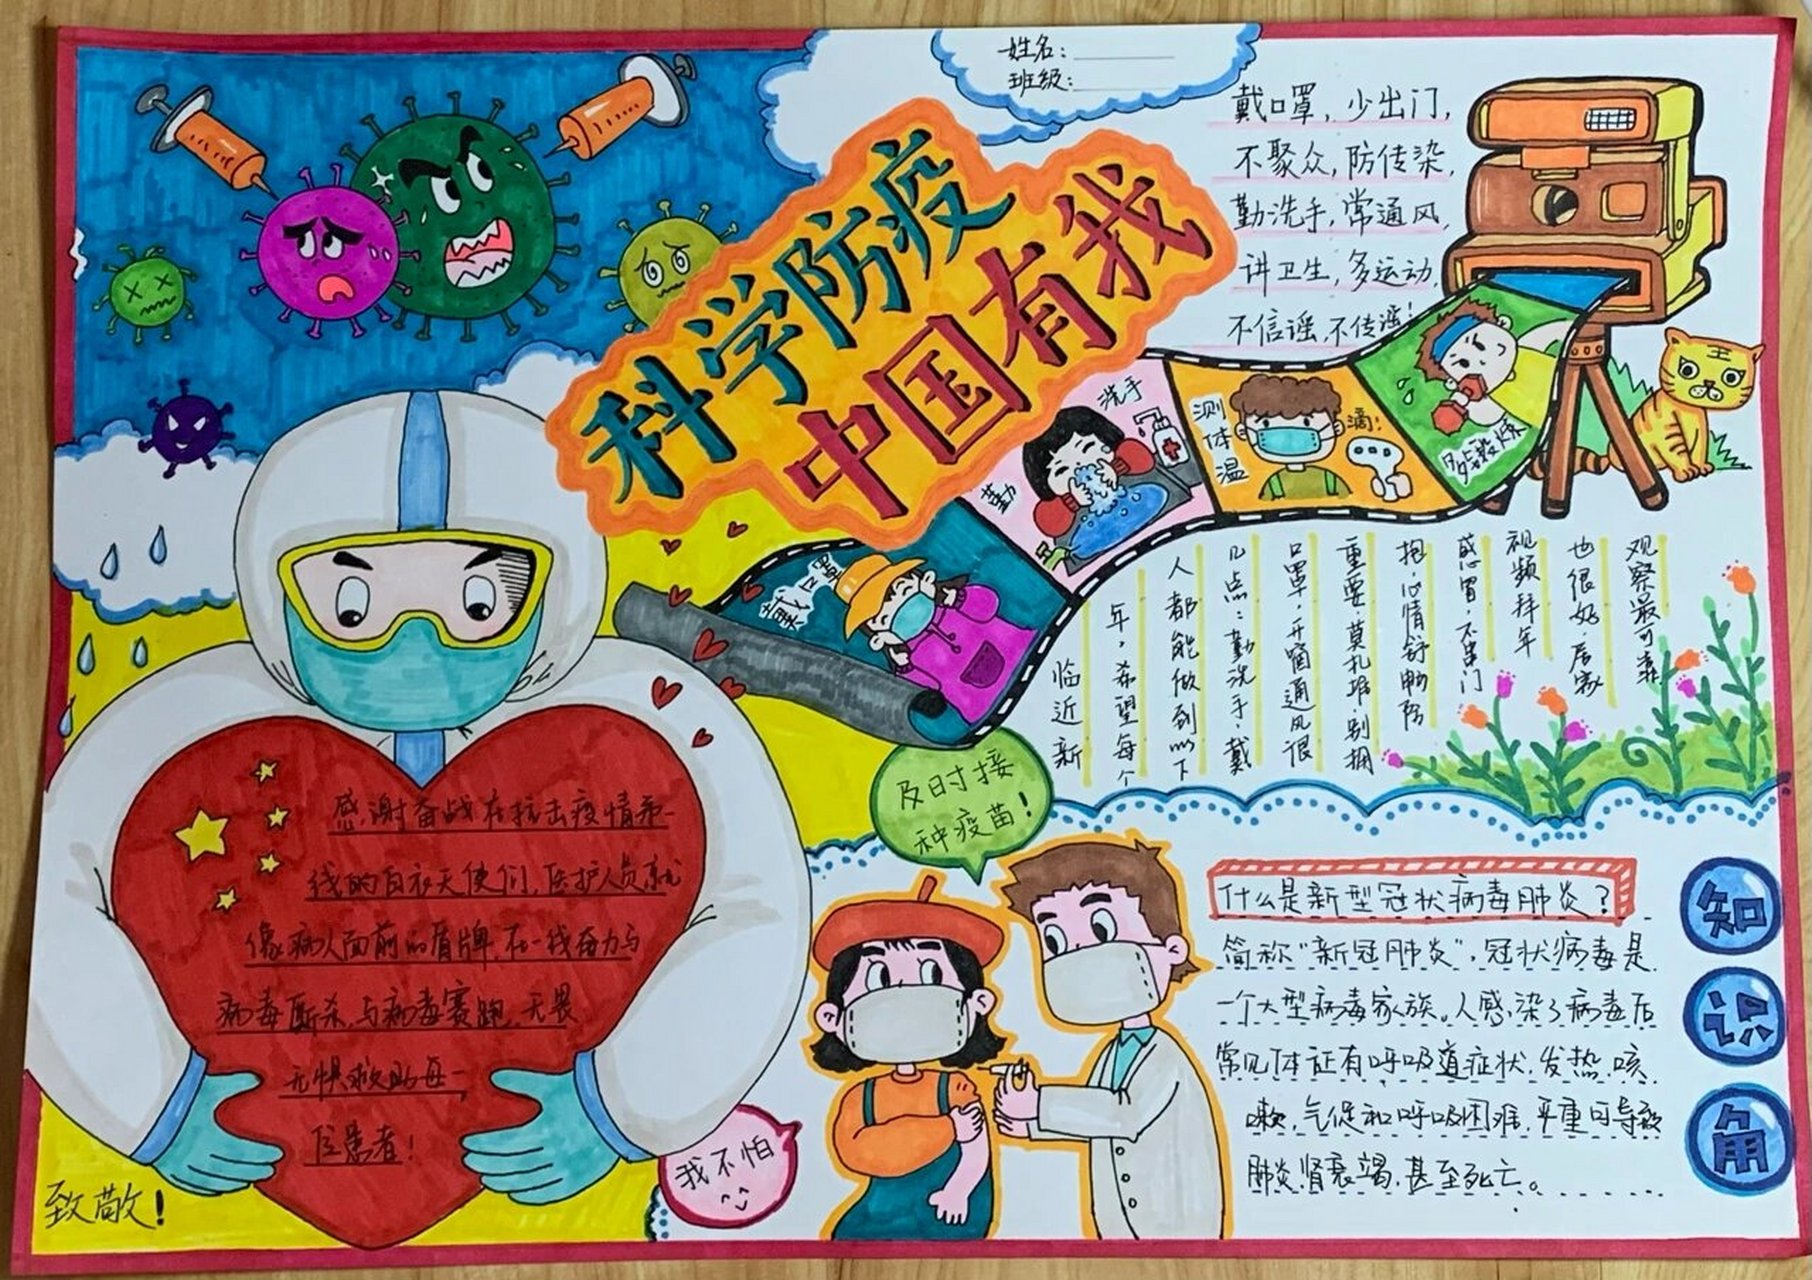 姓名：
班级：
科学防疫
中国有我
戴口罩，少出门，
不聚众，防传染，
勤洗手，常通风，
讲卫生，多运动，
不信谣，不传谣！
戴口罩
勤
洗手
测体温
滴！
多锻炼
临近新
年，希望每个
人都能做到以下
几点：勤洗手，戴
口罩，开窗通风很
重要，莫扎堆，别拥
抱，心情舒畅防
感冒，不串门
视频拜年
也很好，居家
观察最可靠
感谢奋战在抗击疫情第一
线的白衣天使们，医护人员就
像病人面前的盾牌，在一线奋力与
病毒厮杀，与病毒赛跑，无畏
无惧救助每一
位患者！
致敬！
及时接
种疫苗！
我不怕
知识角
什么是新型冠状病毒肺炎？
简称“新冠肺炎”，冠状病毒是
一个大型病毒家族。人感染了病毒后
常见体证有呼吸道症状，发热，咳
嗽，气促和呼吸困难，严重可导致
肺炎肾衰竭，甚至死亡。